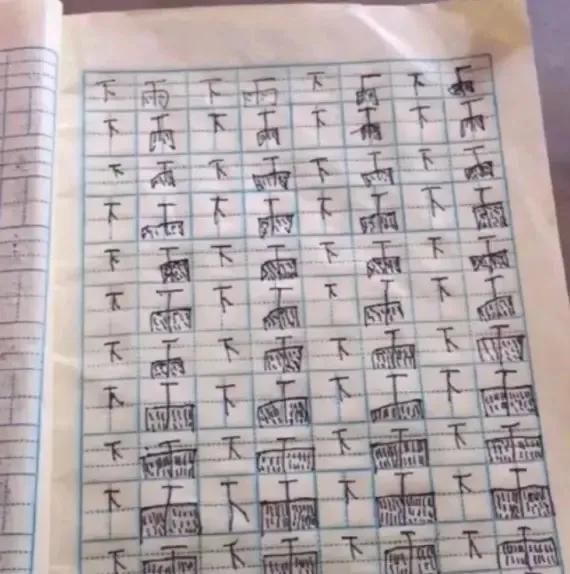 下 雨 下 雨 下 雨 下 雨
下 雨 下 雨 下 雨 下 雨
下 雨 下 雨 下 雨 下 雨
下 雨 下 雨 下 雨 下 雨
下 雨 下 雨 下 雨 下 雨
下 雨 下 雨 下 雨 下 雨
下 雨 下 雨 下 雨 下 雨
下 雨 下 雨 下 雨 下 雨
下 雨 下 雨 下 雨 下 雨
下 雨 下 雨 下 雨 下 雨
下 雨 下 雨 下 雨 下 雨